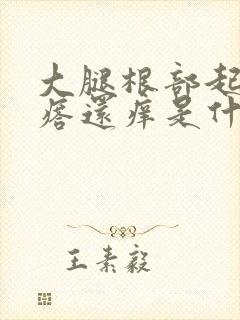 大腿根部起
痞還痒是什
王素毅